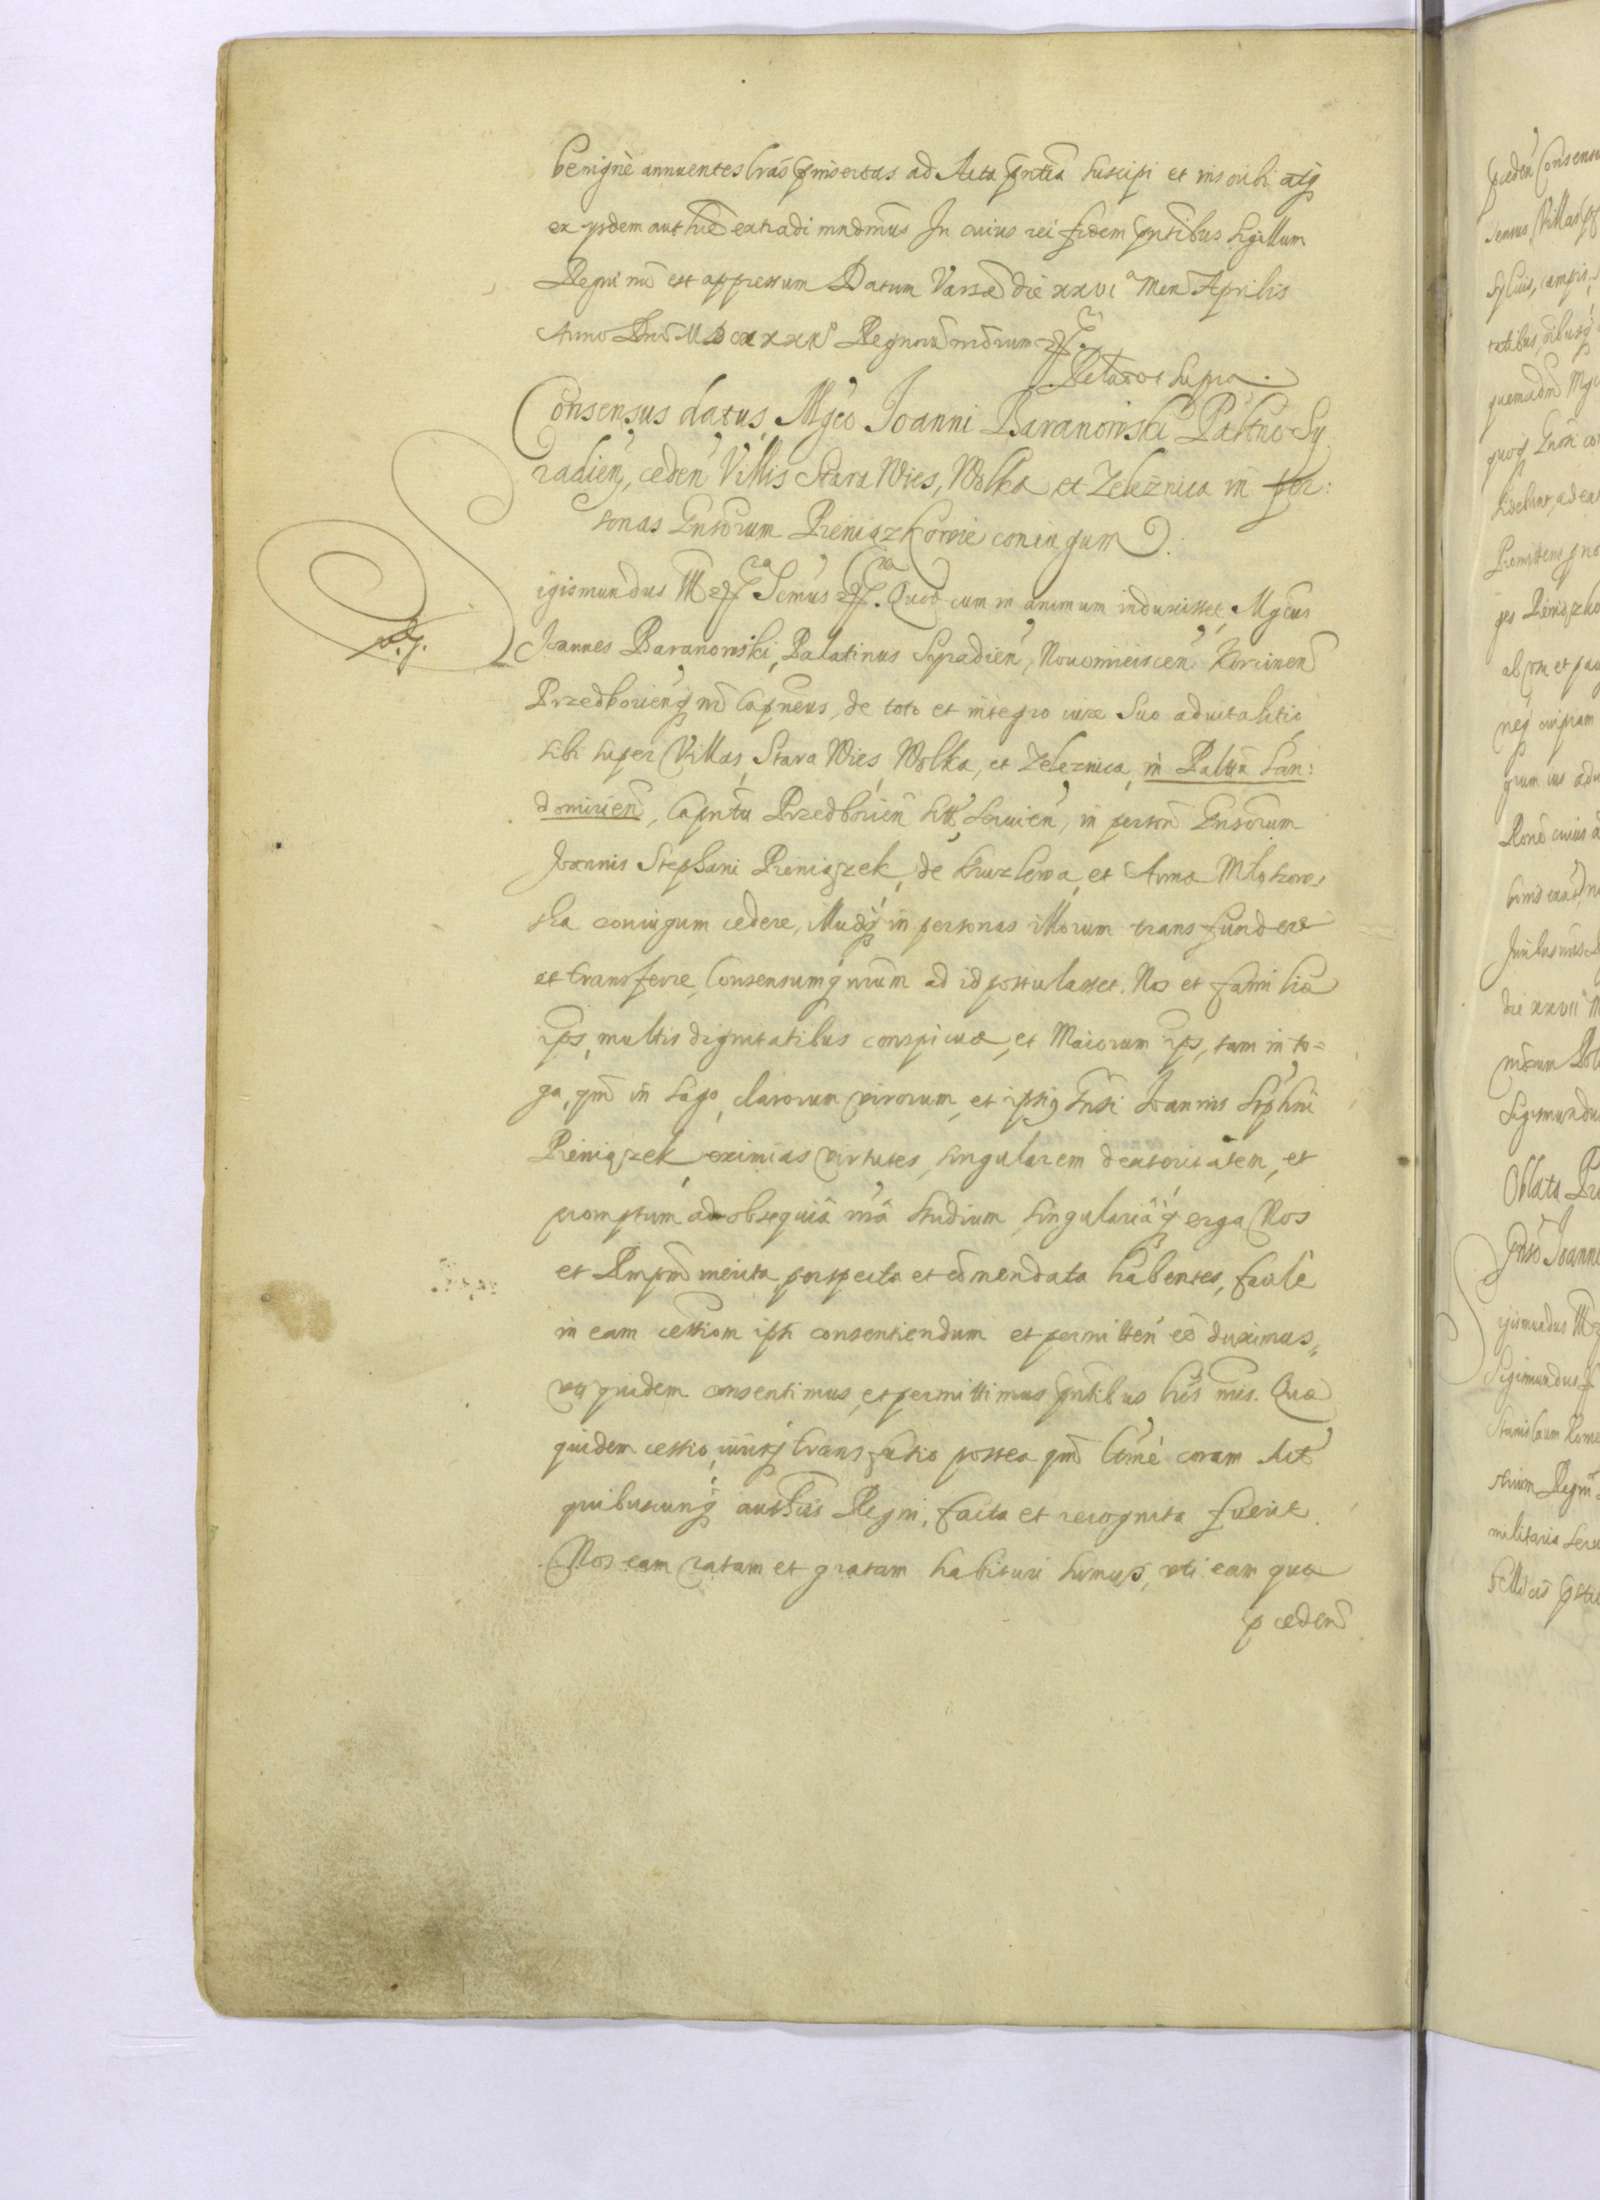 benignè annuentes lrãs pinsertas ad Acta pntia suscipi et inscribi atq
ex ysdem authẽ extradi mndmus In cuius rei fidem pntibus sigillum
Regni nrĩ est appressum Datum Varsae die xxvi a Men Aprilis
Anno Dni MDCXXX Regnorũ nrorum
Relatio ut supra.
Consensus datus Mgco Joanni Baranowski Paltno Sy
radien, ceden Villis Stara Wies, Wolka et Zeleznica in per:
sonas Gnsorum Pieniązkowie coniugum
igismundus III Scimus Quod cum in animum induxisset, Mgcus
Joannes Baranowski, Palatinus Syradien, Nouomieiscen Korcinen
Przedborienq nr Capneus, de toto et integro iure suo aduitalitio
sibi super Villas, Stara Wies, Wolka, et Zeleznica, in Paltu San:
domirien, Capntu Przedborien sitt seruien, in person Gnsorum
Joannis Stephani Pieniązek, de Kruzlowa, et Anna Mlokows
ska coniugum cedere, illudq in personas illorum transfundere
et transferre, Consensumq nrum ad id postulasset. Nos et familiae
ips, multis dignitatibus conspicuae, et Maiorum ips, tam in to=
ga, qm in sago, clarorum virorum, et ipsiq Gnsi Joannis Stphni
Pieniązek, eximias virtutes, singularem dexteritatem, et
promptum ad obsequia nra studium, singulariaq erga Nos
et Rempub merita perspecta et comendata habentes, facile
in eam cession ipsi consentiendum et permitten eo duximus,
uti quidem consentimus, et permittimus pntibus lris nris. Quae
quidem cessio, iurisq transfusio postea qm ltime coram Act
quibuscunq authcis Regni, facta et recognita fuerit.
Nos eam ratam et gratam habituri sumus, uti eam qua
pceden